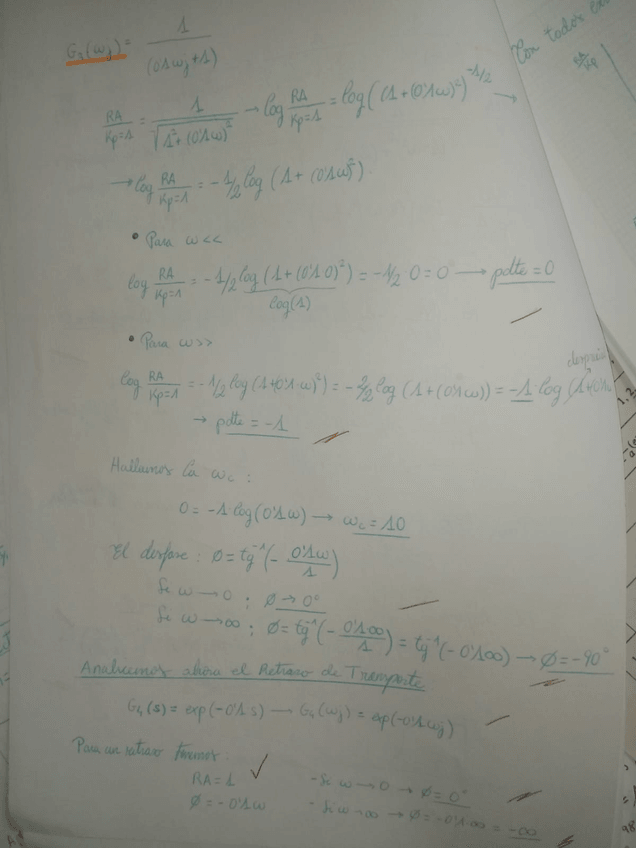 G₃(ωj) = 1 / (0'1ωj+1)
Con todos
RA/Kp=1 = 1/√(1²+(0'1ω)²) → log RA/Kp=1 = log((1+(0'1ω)²)^-1/2 →
RA/Kp
→ log RA/Kp=1 = -1/2 log (1+(0'1ω)²).
• Para ω<<
log RA/Kp=1 = -1/2 log (1+(0'1 0)²) = -1/2 0 = 0 → pdte = 0
log(1)
• Para ω>>
desprecia
log RA/Kp=1 = -1/2 log (1+(0'1·ω)²) = -2/2 log (1+(0'1ω)) = -1 log (1+0'1ω
→ pdte = -1
Hallamos la ωc :
0 = -1 log(0'1ω) → ωc = 10
El desfase : Ø = tg⁻¹(- 0'1ω/1)
Si ω → 0 ; Ø → 0°
Si ω → ∞ ; Ø = tg⁻¹(- 0'1∞/1) = tg⁻¹(-0'1∞) → Ø = -90°
Analicemos ahora el Retraso de Transporte
G₄(s) = exp(-0'1 s) → G₄(ωj) = exp(-0'1ωj)
Para un retraso tenemos:
RA = 1 ✓ - Si ω → 0 → Ø = 0°
Ø = -0'1ω - Si ω → ∞ → Ø = -0'1∞ = -∞